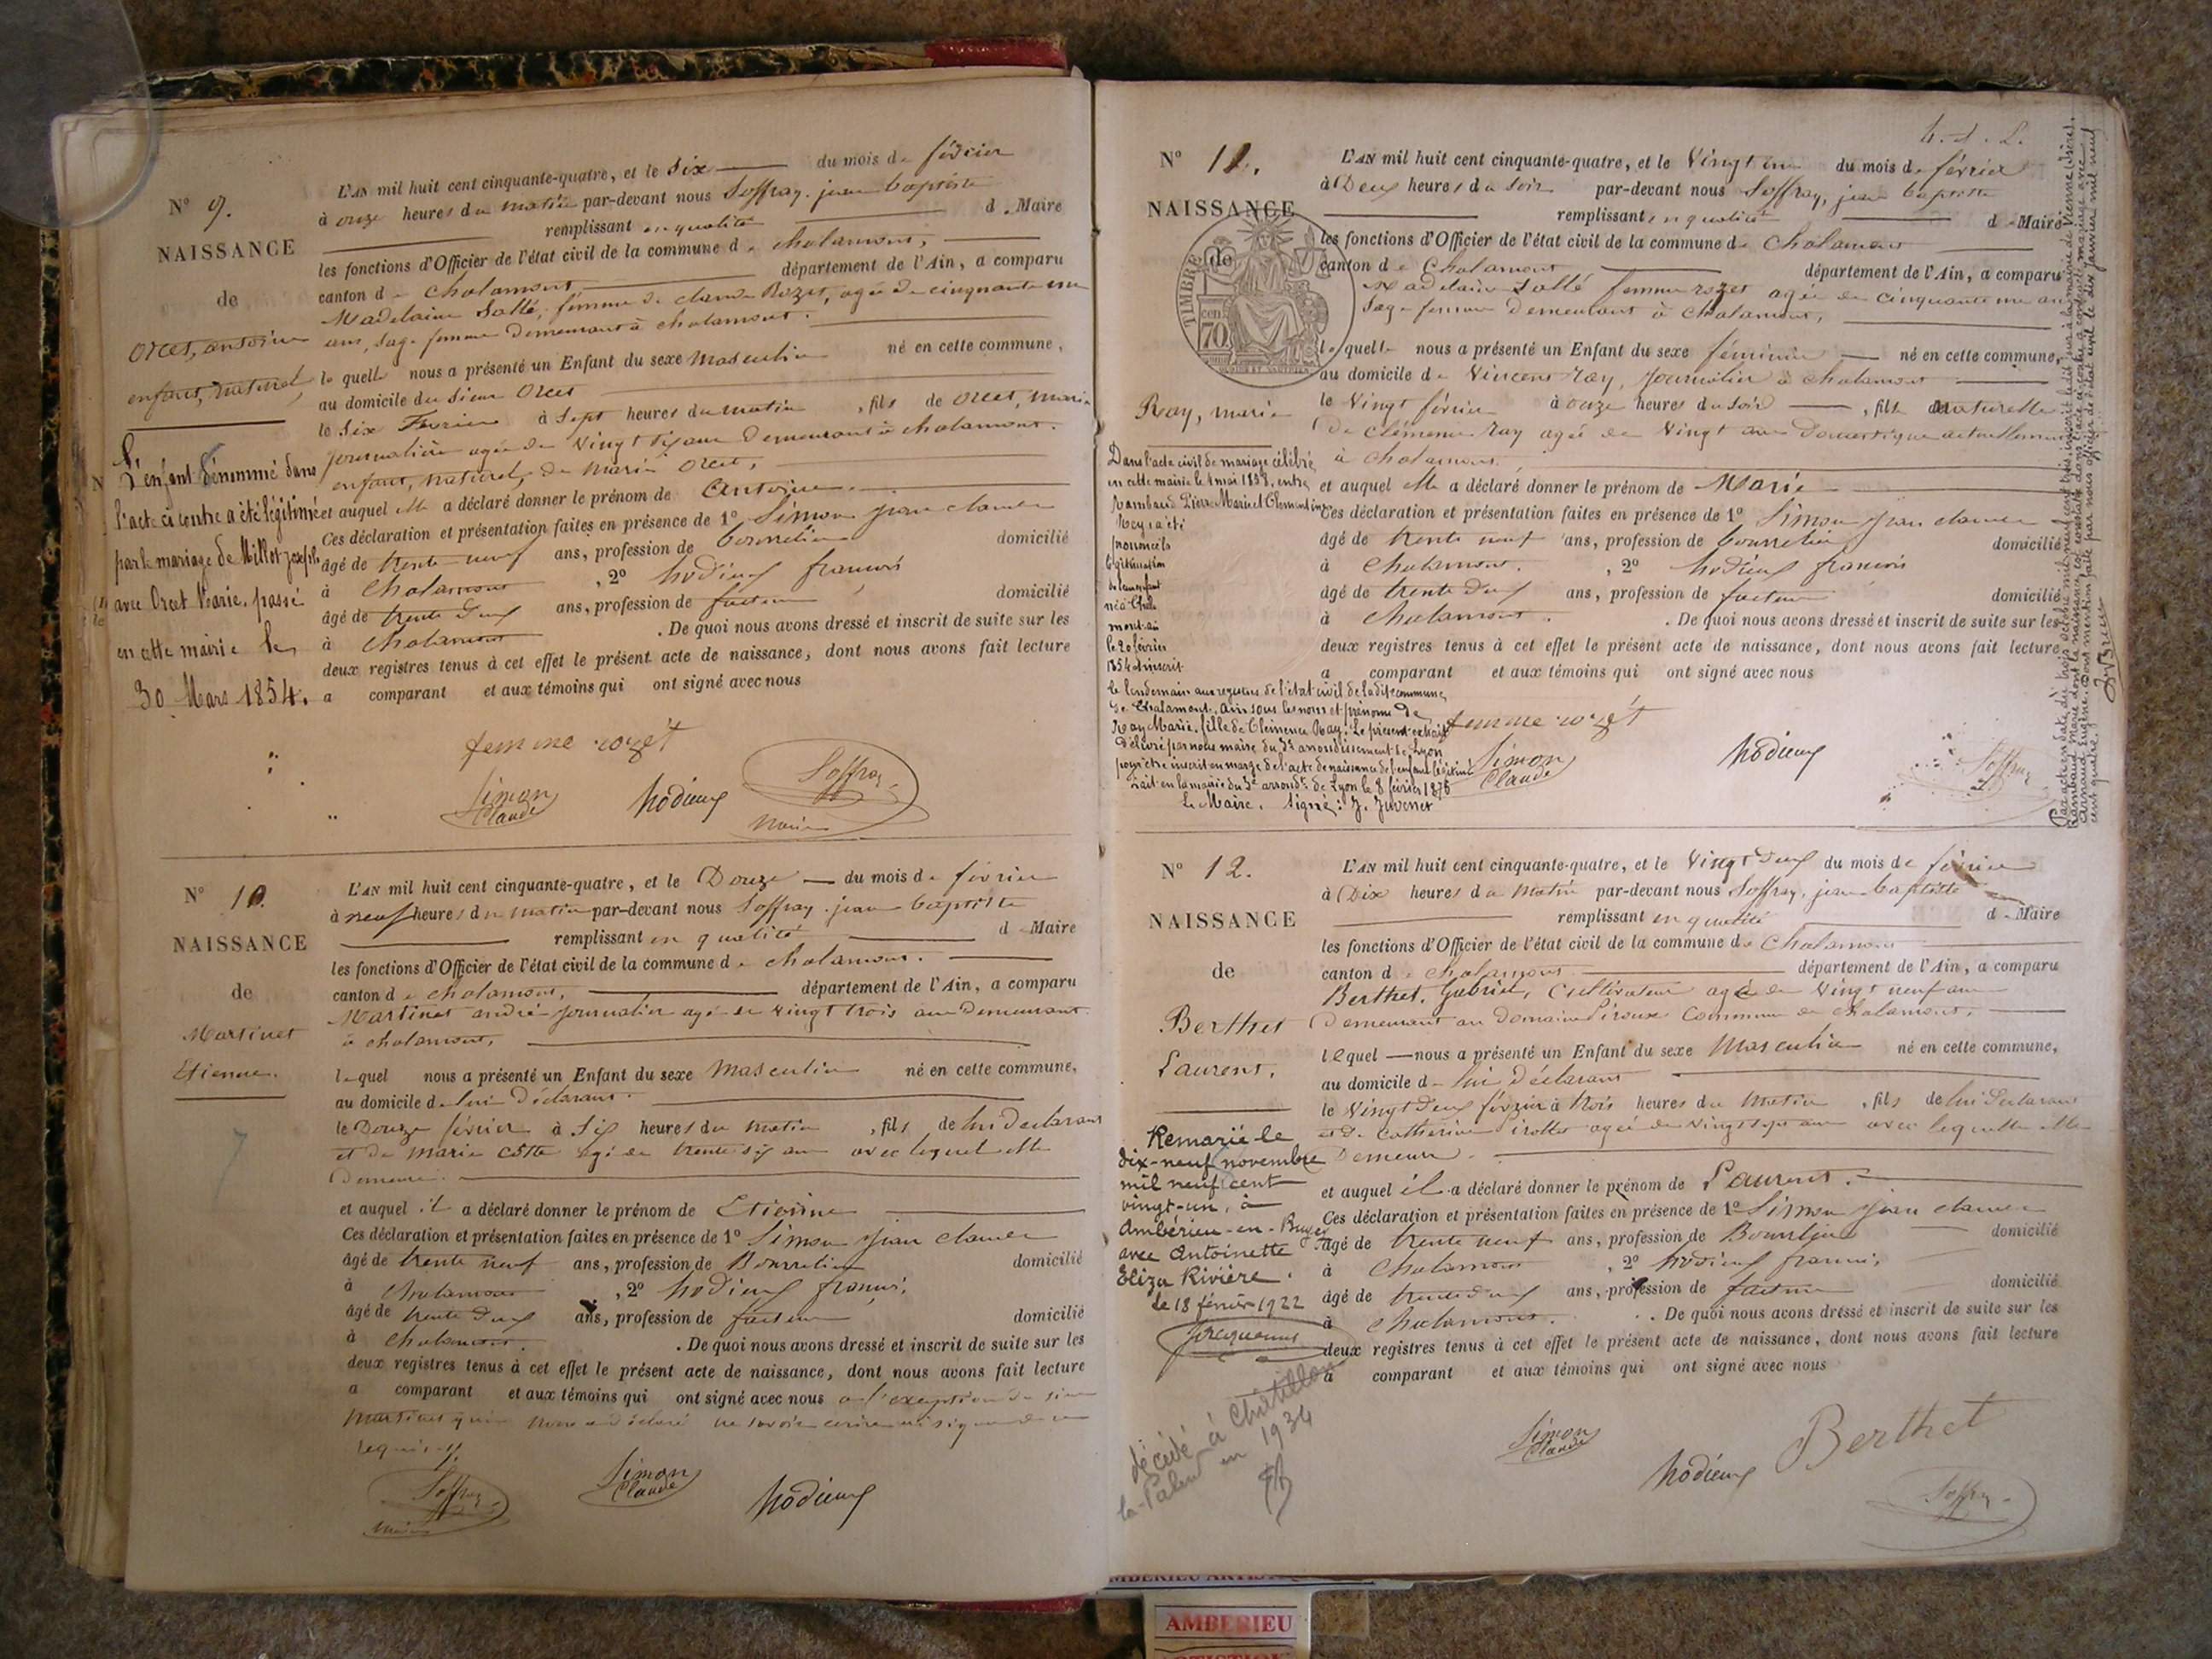 N° 9.
NAISSANCE
de
Orcet, antoine
enfant, naturel
L'enfant dénommé dans
l'acte ci contre a été légitimé
par le mariage de Millot Joseph
avec Orcet Marie, passé
en cette mairie le
30 Mars 1854.
L'AN mil huit cent cinquante-quatre, et le Six du mois de février
à onze heures du matin par-devant nous Soffray, jean baptiste
remplissant en qualité de Maire
les fonctions d'Officier de l'état civil de la commune de chalamont,
canton de Chalamont département de l'Ain, a comparu
Madelaine Sallé, femme de claude Rozet, agée de cinquante un
ans, sage femme demeurant à chalamont.
la quelle nous a présenté un Enfant du sexe Masculin né en cette commune,
au domicile du Sieur Orcet
le Six Fevrier à Sept heures du matin, fils de Orcet, marie
journalière agée de Vingt Six ans demeurant à chalamont.
enfant, naturel, de Marie Orcet,
et auquel elle a déclaré donner le prénom de Antoine
Ces déclaration et présentation faites en présence de 1° Simon jean claude
âgé de trente neuf ans, profession de bourrelier domicilié
à Chalamont, 2° hodieux francois
âgé de trente deux ans, profession de facteur domicilié
à Chalamont. De quoi nous avons dressé et inscrit de suite sur les
deux registres tenus à cet effet le présent acte de naissance, dont nous avons fait lecture
a comparant et aux témoins qui ont signé avec nous
femme rozét
Simon Claude hodieux Soffray
maire
N° 10.
NAISSANCE
de
Martinet
Etienne.
7
L'AN mil huit cent cinquante-quatre, et le Douze du mois de février
à neuf heures du matin par-devant nous Soffray, jean baptiste
remplissant en qualité de Maire
les fonctions d'Officier de l'état civil de la commune de chalamont.
canton de chalamont, département de l'Ain, a comparu
Martinet andré journalier agé de vingt trois ans Demeurant
à chalamont,
lequel nous a présenté un Enfant du sexe Masculin né en cette commune,
au domicile de lui Déclarant.
le Douze février à Six heures du matin, fils de lui declarant
et de marie Cotte agée de trente six ans avec lequel elle
Demeure.
et auquel il a déclaré donner le prénom de Etienne
Ces déclaration et présentation faites en présence de 1° Simon jean claude
âgé de trente neuf ans, profession de Bourrelier domicilié
à Chalamont, 2° hodieux françois,
âgé de trente deux ans, profession de facteur domicilié
à Chalamont. De quoi nous avons dressé et inscrit de suite sur les
deux registres tenus à cet effet le présent acte de naissance, dont nous avons fait lecture
a comparant et aux témoins qui ont signé avec nous a l'exception du sieur
Martinet qui nous a déclaré ne savoir ecrire ni signer de ce
requis.
Soffray Simon Claude hodieux
4. d. L.
N° 11.
NAISSANCE
de
TIMBRE
70
Ray, marie
Dans l'acte civil de mariage célébré
en cette mairie le 1 mai 1858, entre
Rambaud Pierre Marie et Clémentine
Ray a été
prononcée la
légitimation
de leur enfant
né à Chala
mont ain
le 20 février
1854 et inscrit
le lendemain aux registres de l'état civil de ladite commune
de Chalamont, ain sous les noms et prénoms de
Ray Marie, fille de Clémence Ray. Le présent extrait
délivré par nous maire du 3e arrondissement de Lyon
pour être inscrit en marge de l'acte de naissance de l'enfant légitimé
Fait en la mairie du 3e arrondt de Lyon le 8 février 1876
Le Maire, Signé: J. Juvenet
L'AN mil huit cent cinquante-quatre, et le Vingt un du mois de février
à Deux heures du Soir par-devant nous Soffray, jean baptiste
remplissant en qualité de Maire
les fonctions d'Officier de l'état civil de la commune de Chalamont
canton de Chalamont département de l'Ain, a comparu
Madelaine Sallé femme rozet agée de cinquante un an
Sage femme Demeurant à Chalamont,
laquelle nous a présenté un Enfant du sexe féminin né en cette commune,
au domicile de Vincent Ray, Journalier à chalamont
le Vingt février à onze heures du Soir, fille Naturelle
De Clémence Ray agée de Vingt ans Domestique actuellement
à chalamont.
et auquel elle a déclaré donner le prénom de Marie
Ces déclaration et présentation faites en présence de 1° Simon jean claude
âgé de trente neuf ans, profession de bourrelier domicilié
à Chalamont. , 2° hodieux francois
âgé de trente deux ans, profession de facteur domicilié
à Chalamont. De quoi nous avons dressé et inscrit de suite sur les
deux registres tenus à cet effet le présent acte de naissance, dont nous avons fait lecture
a comparant et aux témoins qui ont signé avec nous
femme rozét
Simon Claude hodieux Soffray
Par acte en date du trois octobre mil neuf cent trois inscrit le dit jour à la mairie de Vienne (Isère),
Rambaud Marie dont la naissance est constatée dans l'acte ci-contre a contracté mariage avec
Arnaud Eugène. Dont mention faite par nous officier de l'état civil le dix janvier mil neuf
cent quatre.
N° 12.
NAISSANCE
de
Berthet
Laurent.
Remarié le
dix-neuf novembre
mil neuf cent
vingt-un, à
Ambérieu-en-Bugey
avec Antoinette
Eliza Rivière.
le 18 février 1922
décédé à Chatillon
la-Palud en 1934
L'AN mil huit cent cinquante-quatre, et le Vingt Deux du mois de février
à Dix heures du Matin par-devant nous Soffray, jean baptiste
remplissant en qualité de Maire
les fonctions d'Officier de l'état civil de la commune de Chalamont
canton de chalamont département de l'Ain, a comparu
Berthet, Gabriel, Cultivateur agé de Vingt neuf ans
Demeurant au Domaine Commune de chalamont,
lequel nous a présenté un Enfant du sexe Masculin né en cette commune,
au domicile de lui Déclarant
le Vingt Deux février à trois heures du Matin, fils de lui Declarant
et de Catherine agée de vingt sept ans avec laquelle elle
Demeure.
et auquel il a déclaré donner le prénom de Laurent.
Ces déclaration et présentation faites en présence de 1° Simon jean claude
âgé de trente neuf ans, profession de Bourrelier domicilié
à Chalamont, 2° hodieux francois,
âgé de trente deux ans, profession de facteur domicilié
à Chalamont. De quoi nous avons dressé et inscrit de suite sur les
deux registres tenus à cet effet le présent acte de naissance, dont nous avons fait lecture
à comparant et aux témoins qui ont signé avec nous
Simon Claude hodieux Berthet
Soffray
AMBERIEU